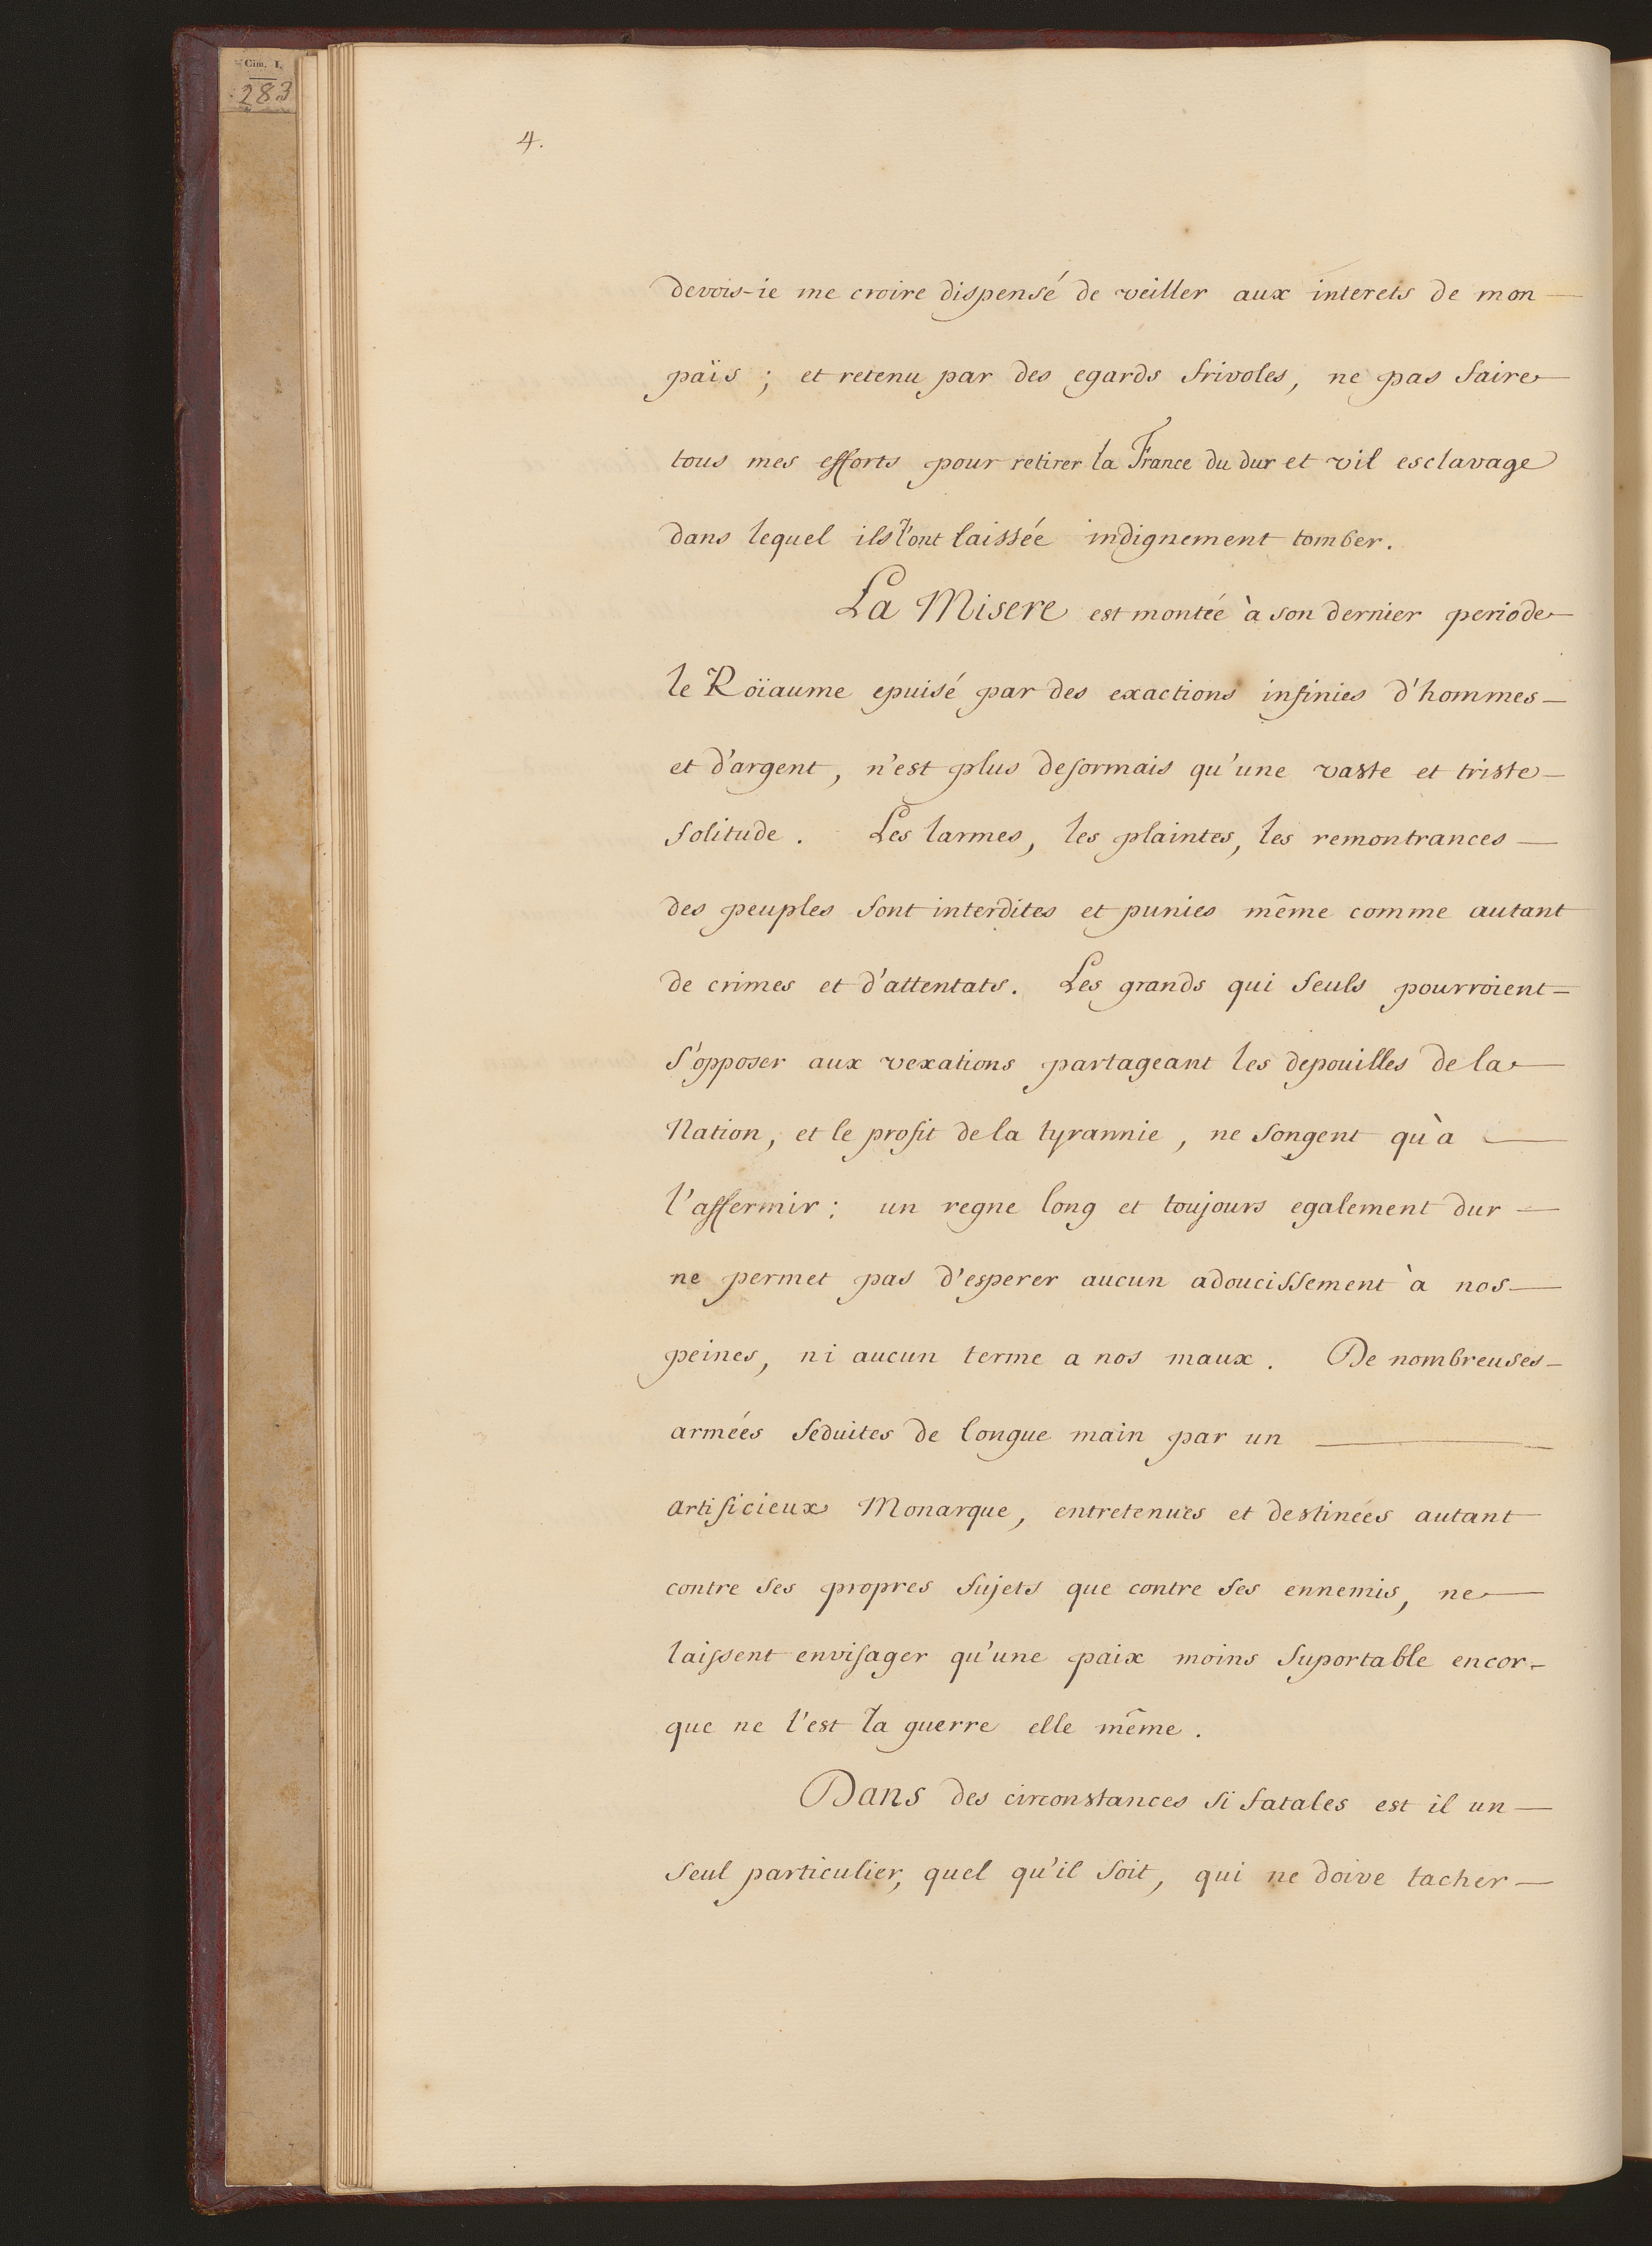 Cim. I.
283
4.
devois-ie me croire dispensé de veiller aux interets de mon
païs ; et retenu par des egards frivoles, ne pas faire
tous mes efforts pour retirer la France du dur et vil esclavage
dans lequel ils l'ont laissée indignement tomber.
La Misere est montée à son dernier periode
le Roïaume epuisé par des exactions infinies d'hommes
et d'argent, n'est plus desormais qu'une vaste et triste
solitude. Les larmes, les plaintes, les remontrances
des peuples sont interdites et punies même comme autant
de crimes et d'attentats. Les grands qui seuls pourroient
s'opposer aux vexations partageant les depouilles de la
Nation, et le profit de la tyrannie, ne songent qu'à
l'affermir : un regne long et toujours egalement dur
ne permet pas d'esperer aucun adoucissement à nos
peines, ni aucun terme a nos maux. De nombreuses
armées seduites de longue main par un
artificieux Monarque, entretenues et destinées autant
contre ses propres sujets que contre ses ennemis, ne
laissent envisager qu'une paix moins suportable encor
que ne l'est la guerre elle même.
Dans des circonstances si fatales est il un
seul particulier, quel qu'il soit, qui ne doive tacher